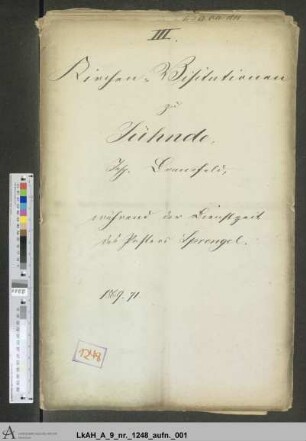 III.
Kirchen-Visitationen
zu
Jühnde,
Insp. Dransfeld,
während der Dienstzeit
des Pastors Sprengel.
1869. 71
1248
LkAH_A_9_nr._1248_aufn._001